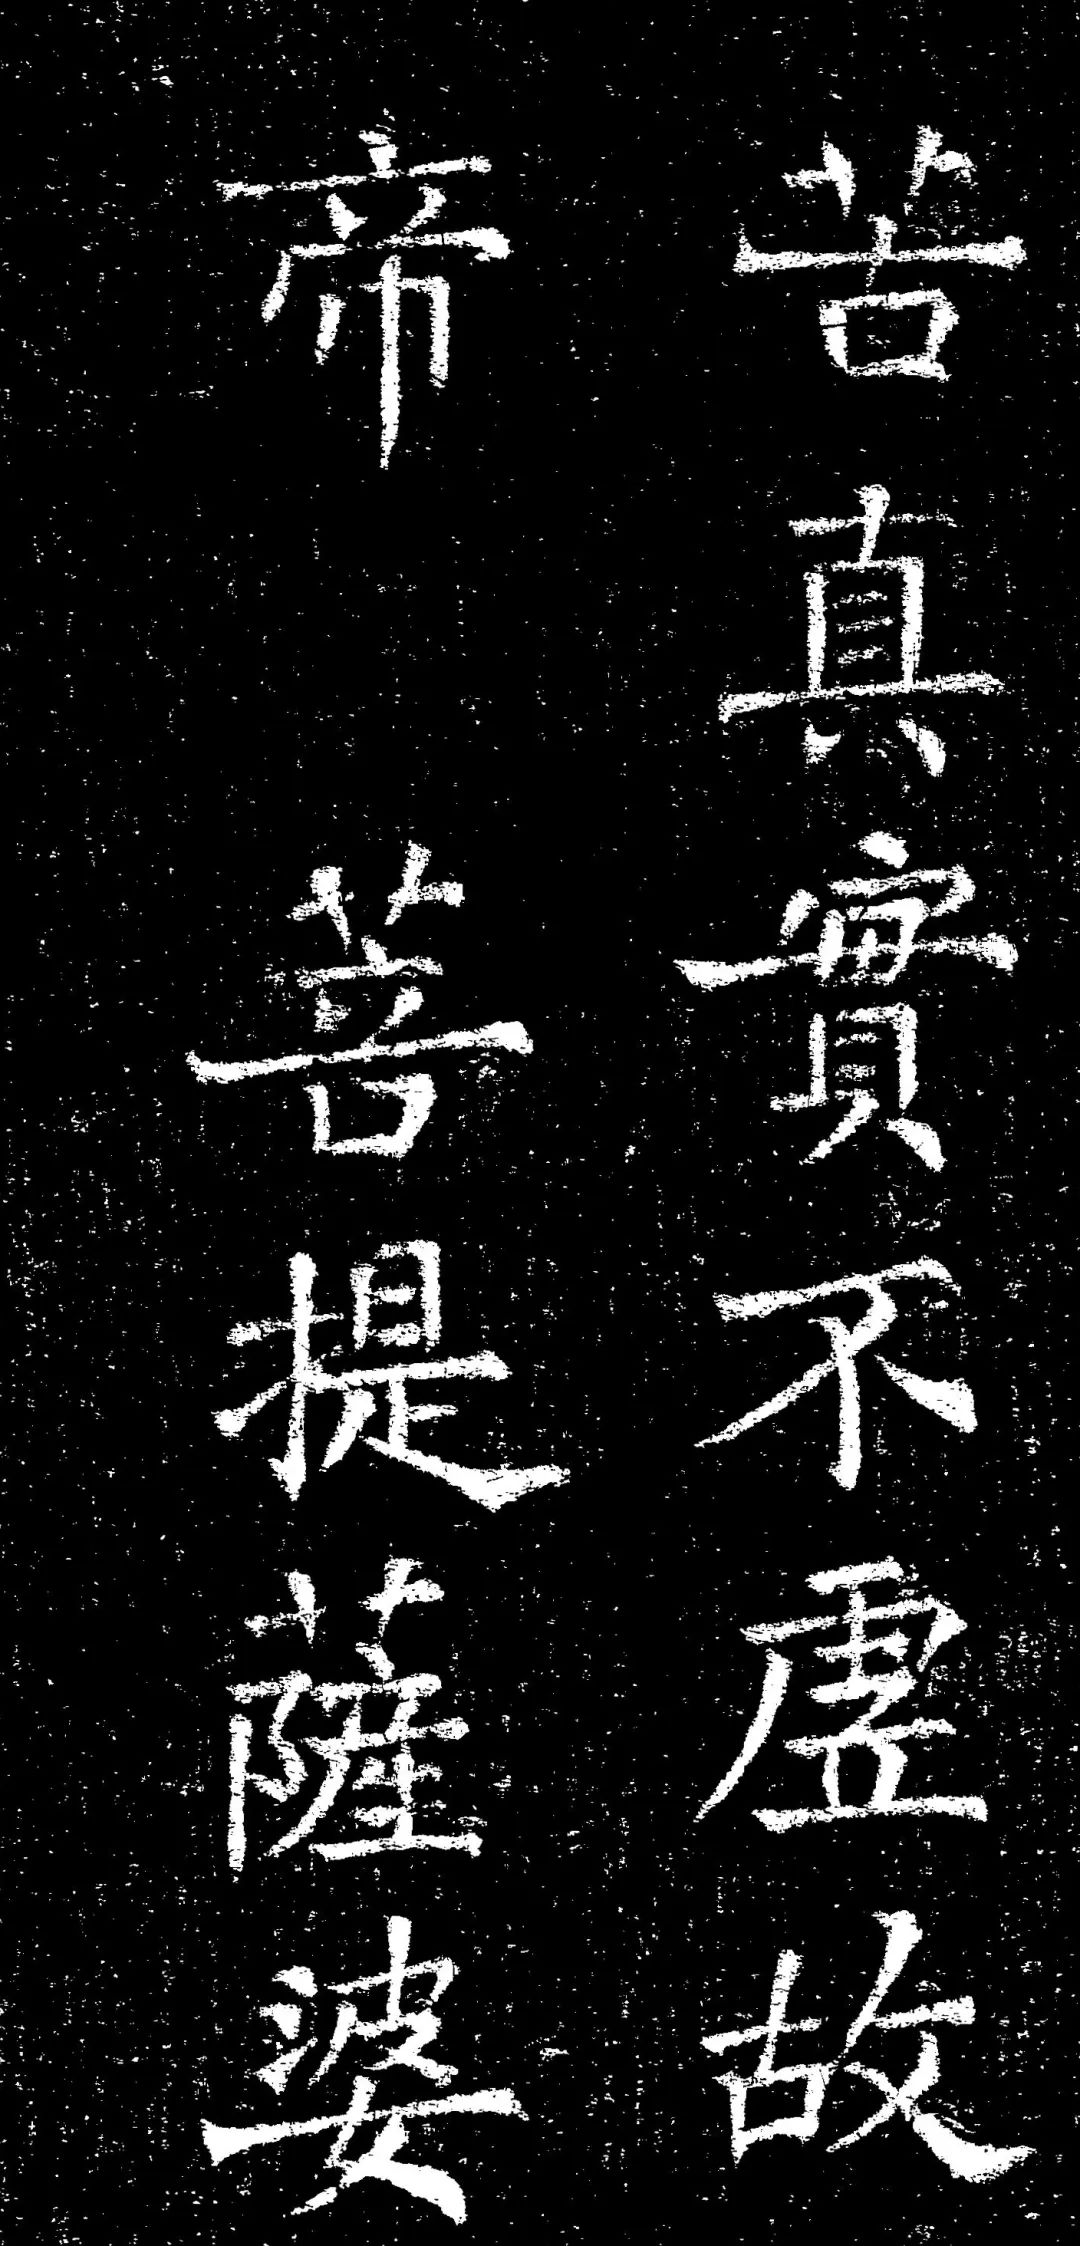 苦真實不虛故
帝 菩提薩婆